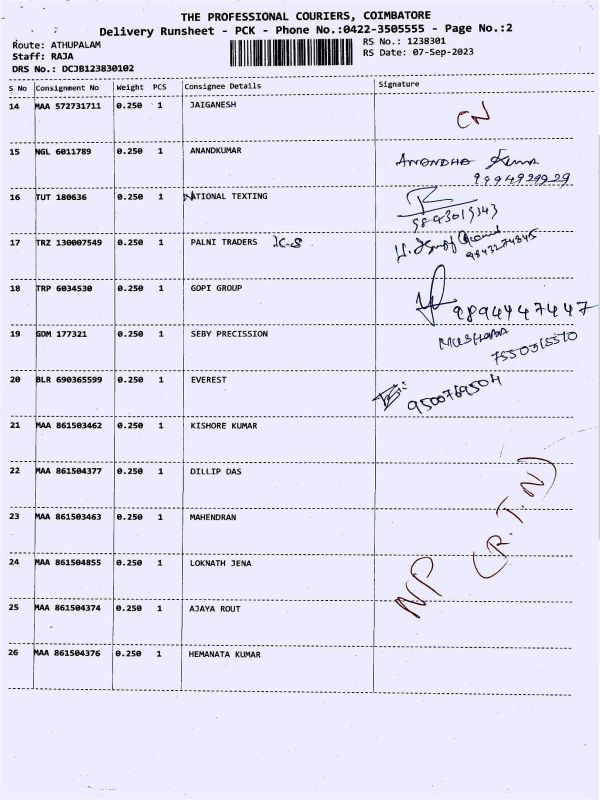 THE PROFESSIONAL COURIERS, COIMBATORE
Delivery Runsheet - PCK - Phone No.:0422-3505555 - Page No.:2
Route: ATHUPALAM
Staff: RAJA
DRS No.: DCJB123830102
RS No.: 1238301
RS Date: 07-Sep-2023
S No Consignment No Weight PCS Consignee Details Signature
14 MAA 572731711 0.250 1 JAIGANESH CN
15 NGL 6011789 0.250 1 ANANDKUMAR ANANDHA Kumar
9994929929
16 TUT 180636 0.250 1 NATIONAL TEXTING
9843019343
17 TRZ 130007549 0.250 1 PALNI TRADERS K-S
9843274345
18 TRP 6034530 0.250 1 GOPI GROUP
9894447447
19 GDM 177321 0.250 1 SEBY PRECISSION
7550315510
20 BLR 690365599 0.250 1 EVEREST
9500769504
21 MAA 861503462 0.250 1 KISHORE KUMAR
22 MAA 861504377 0.250 1 DILLIP DAS
23 MAA 861503463 0.250 1 MAHENDRAN
24 MAA 861504855 0.250 1 LOKNATH JENA
25 MAA 861504374 0.250 1 AJAYA ROUT
26 MAA 861504376 0.250 1 HEMANATA KUMAR
NP (R.T.N)